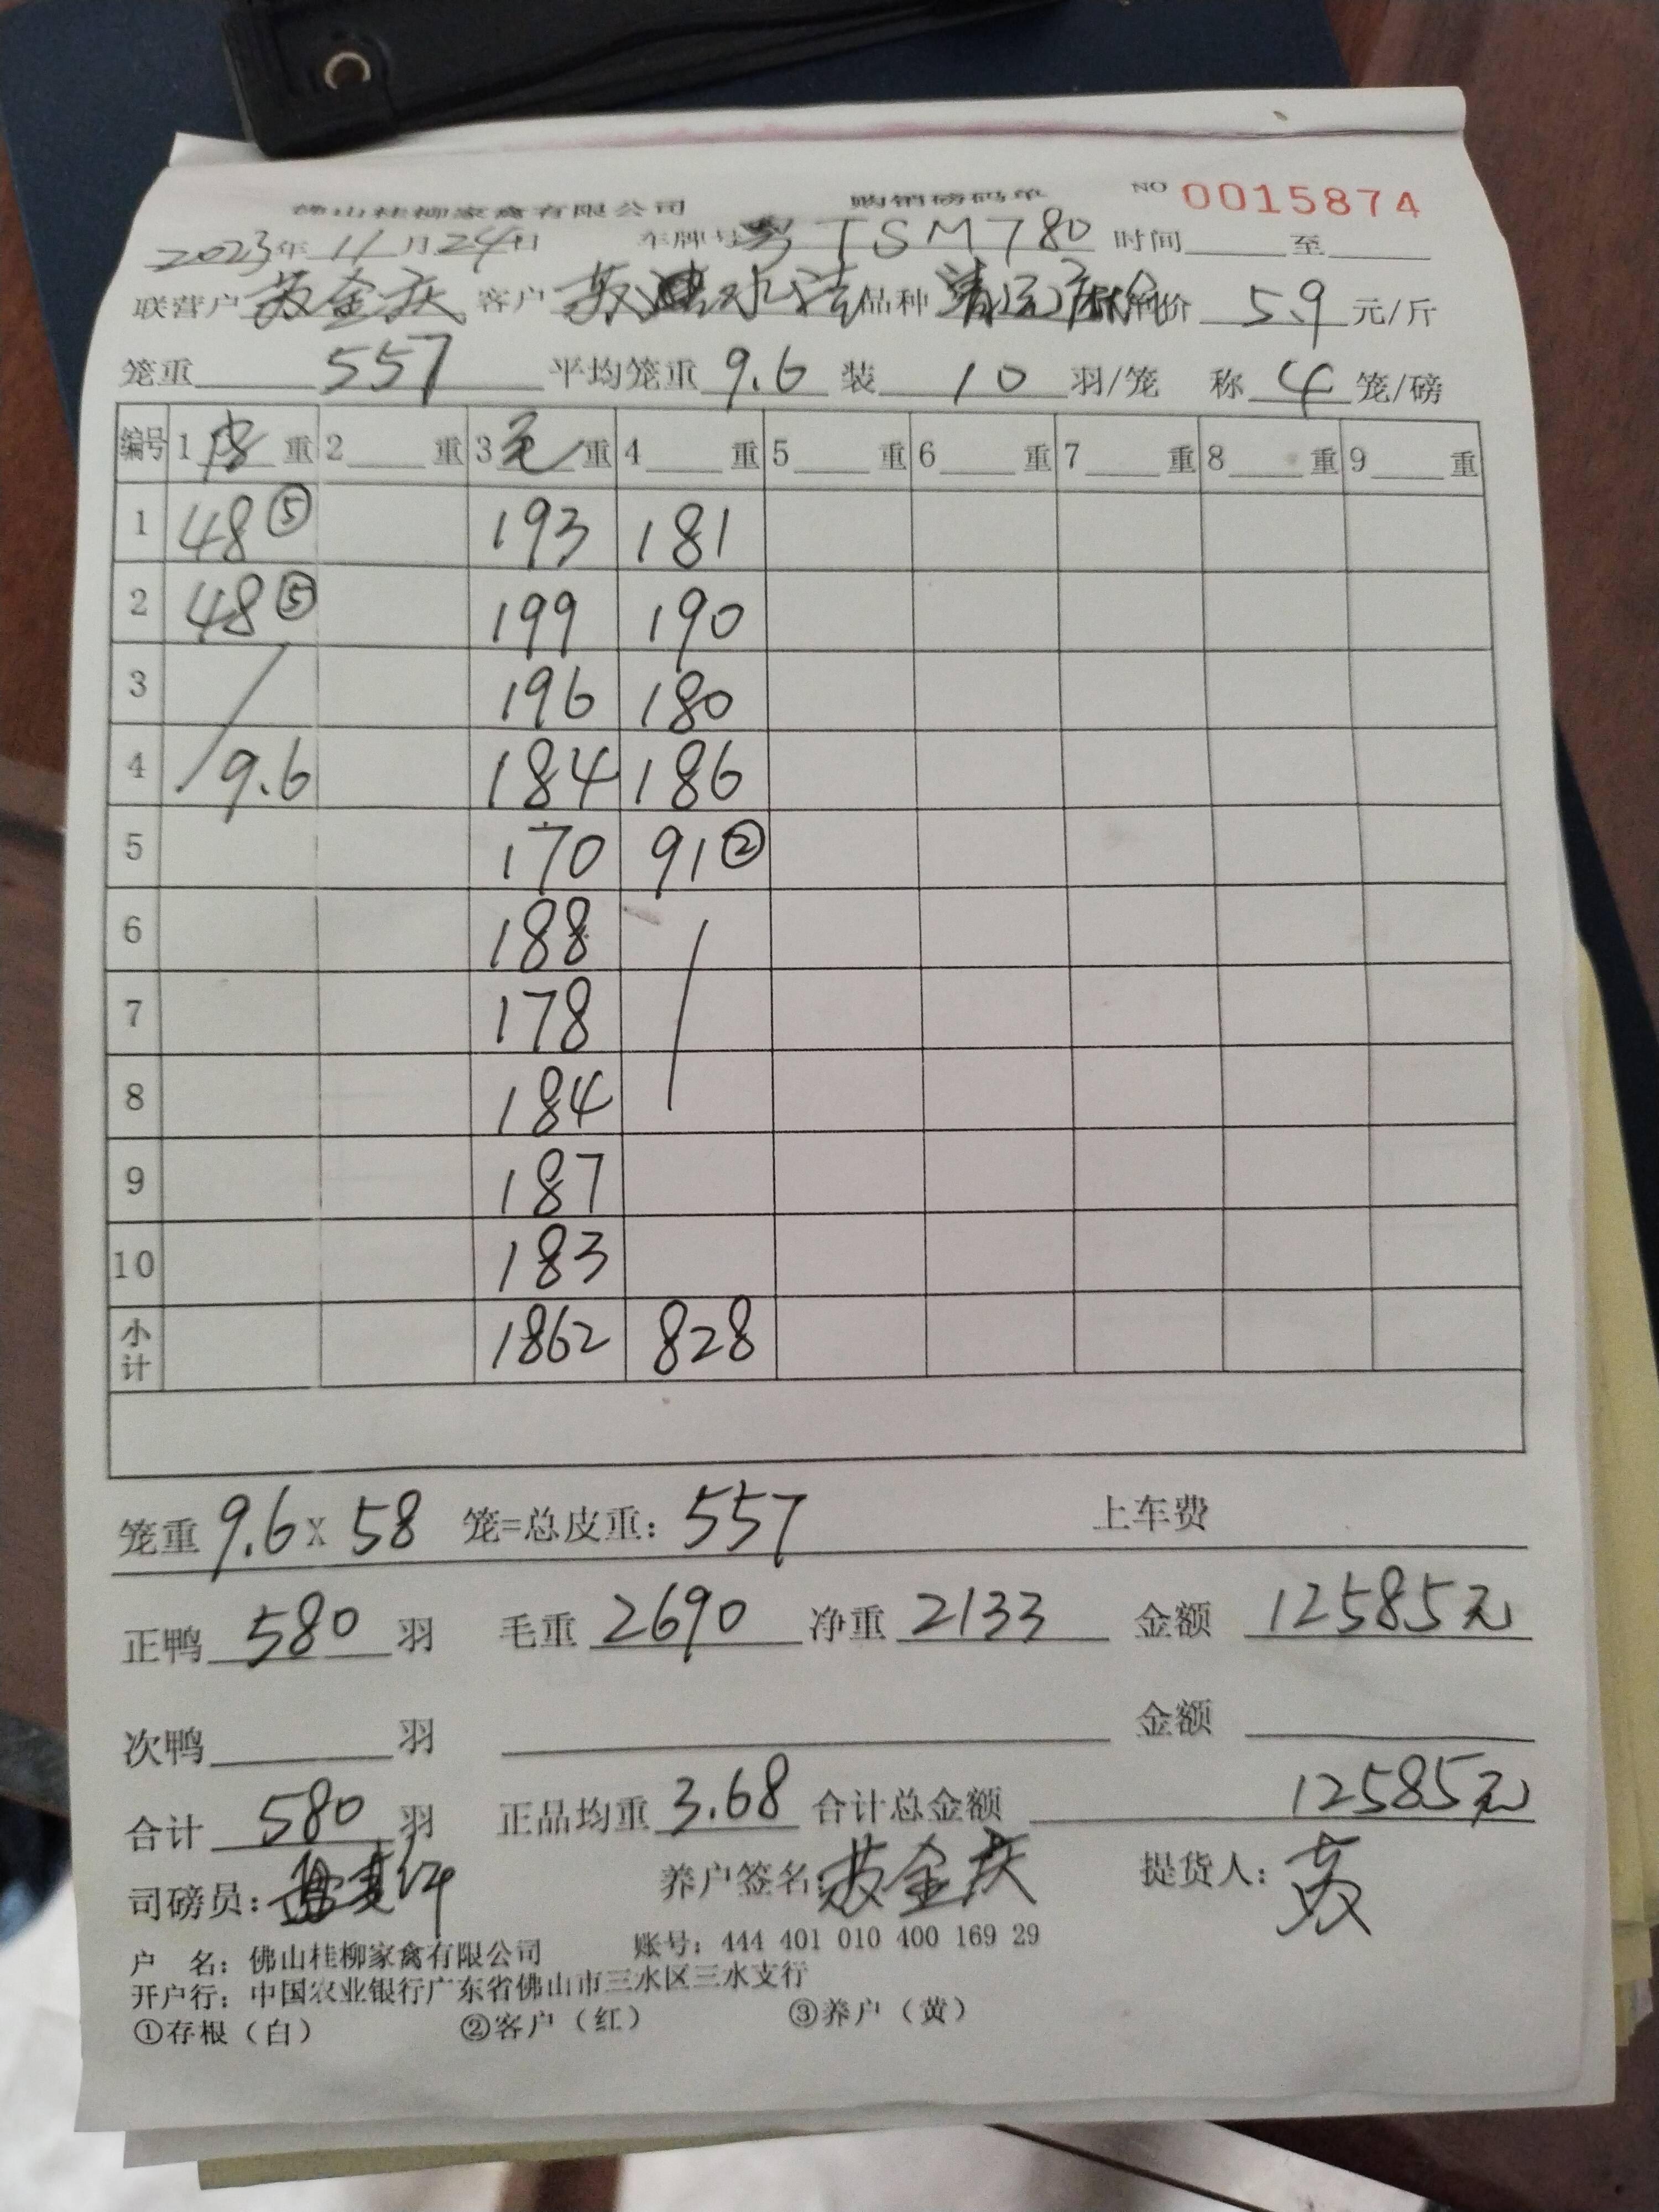 佛山桂柳家禽有限公司 购销磅码单 NO 0015874
2023年11月24日 车牌号粤TSM780 时间 至
联营户 苏金庆 客户 苏 水 品种 单价 5.9 元/斤
笼重 557 平均笼重 9.6 装 10 羽/笼 称 4 笼/磅
编号 1皮重 2 重 3毛重 4 重 5 重 6 重 7 重 8 重 9 重
1 48⑤ 193 181
2 48⑤ 199 190
3 196 180
4 9.6 184 186
5 170 91②
6 188
7 178
8 184
9 187
10 183
小计 1862 828
笼重 9.6 x 58 笼=总皮重: 557 上车费
正鸭 580 羽 毛重 2690 净重 2133 金额 12585元
次鸭 羽 金额
合计 580 羽 正品均重 3.68 合计总金额 12585元
司磅员: 养户签名: 苏金庆 提货人:
户 名: 佛山桂柳家禽有限公司 账号: 444 401 010 400 169 29
开户行: 中国农业银行广东省佛山市三水区三水支行
①存根(白) ②客户(红) ③养户(黄)